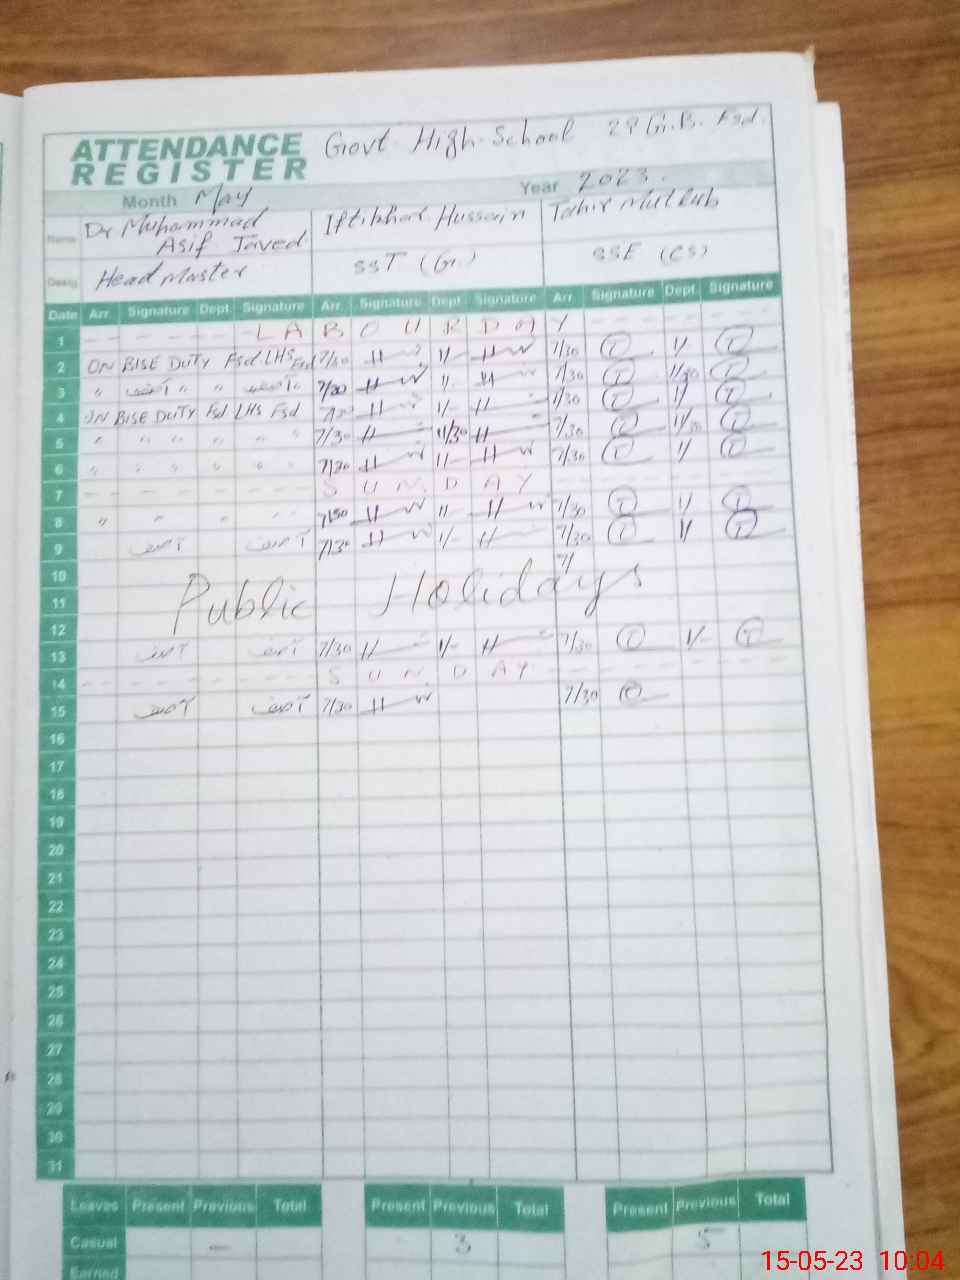 ATTENDANCE REGISTER Govt. High School 29 G.B. Fsd.
Month May Year 2023.
Name Dr Muhammad Asif Javed Iftikhar Hussain Tahir
Desig. Head Master SST (G.) SSE (CS)
Date Arr. Signature Dept. Signature Arr. Signature Dept. Signature Arr. Signature Dept. Signature
1 LABOUR DAY
2 ON BISE DUTY Fsd LHS Fsd 7/30 H 1/- H 7/30 T 1/ T
3 " آصف " " آصف 7/30 H 1/- H 7/30 T 1/30 T
4 ON BISE DUTY Fsd LHS Fsd H 1/- H 7/30 T 1/ T
5 " " " " " " 7/30 H 11/30 H 7/30 T 11/30 T
6 " " " " " " 7/30 H 1/- H 7/30 T 1/ T
7 SUNDAY
8 " " " " 7/30 H 1/- H 7/30 T 1/ T
9 آصف آصف 7/30 H 1/- H 7/30 T 1/ T
10 7/
11 Public Holidays
12
13 آصف آصف 7/30 H 1/- H 7/30 T 1/- T
14 SUNDAY
15 آصف آصف 7/30 H 7/30 T
16
17
18
19
20
21
22
23
24
25
26
27
28
29
30
31
Leaves Present Previous Total Present Previous Total Present Previous Total
Casual - 3 5
Earned
15-05-23 10:04